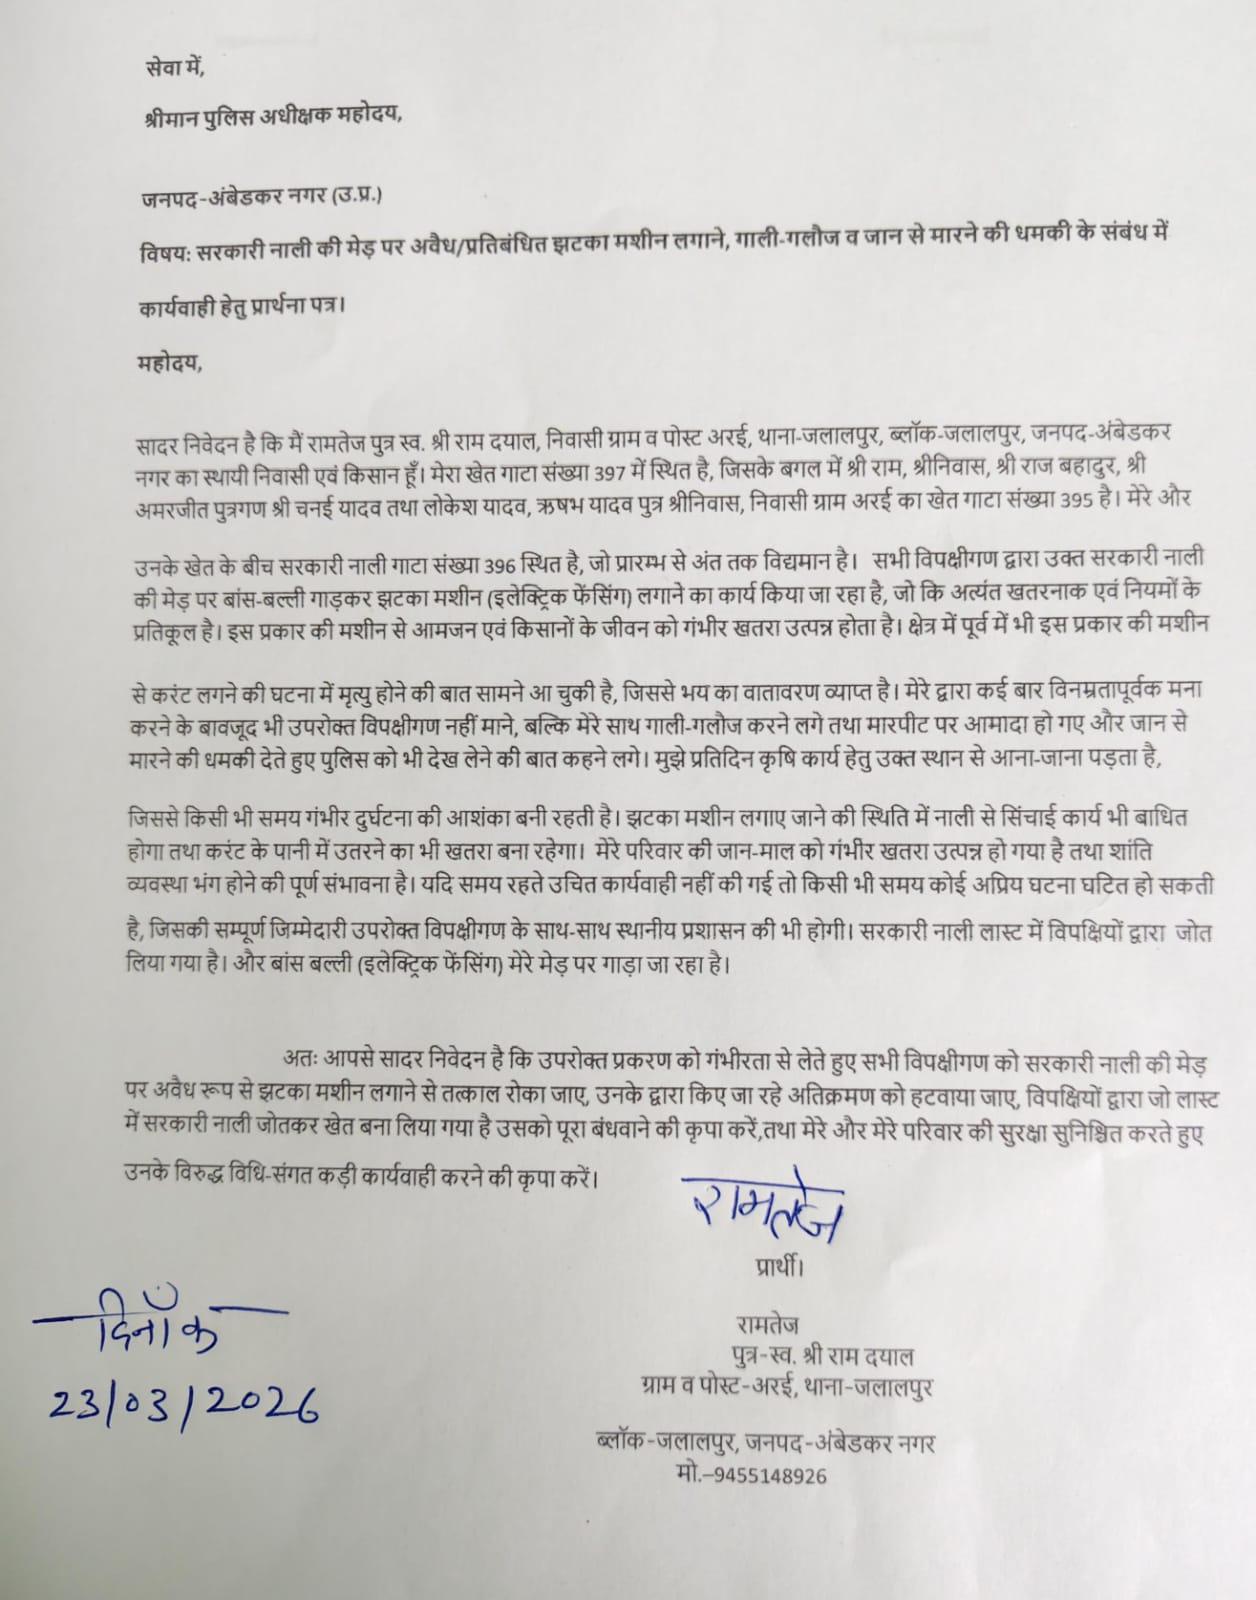 सेवा में,
श्रीमान पुलिस अधीक्षक महोदय,
जनपद-अंबेडकर नगर (उ.प्र.)
विषय: सरकारी नाली की मेड़ पर अवैध/प्रतिबंधित झटका मशीन लगाने, गाली-गलौज व जान से मारने की धमकी के संबंध में
कार्यवाही हेतु प्रार्थना पत्र।
महोदय,
सादर निवेदन है कि मैं रामतेज पुत्र स्व. श्री राम दयाल, निवासी ग्राम व पोस्ट अरई, थाना-जलालपुर, ब्लॉक-जलालपुर, जनपद-अंबेडकर
नगर का स्थायी निवासी एवं किसान हूँ। मेरा खेत गाटा संख्या 397 में स्थित है, जिसके बगल में श्री राम, श्रीनिवास, श्री राज बहादुर, श्री
अमरजीत पुत्रगण श्री चनई यादव तथा लोकेश यादव, ऋषभ यादव पुत्र श्रीनिवास, निवासी ग्राम अरई का खेत गाटा संख्या 395 है। मेरे और
उनके खेत के बीच सरकारी नाली गाटा संख्या 396 स्थित है, जो प्रारम्भ से अंत तक विद्यमान है। सभी विपक्षीगण द्वारा उक्त सरकारी नाली
की मेड़ पर बांस-बल्ली गाड़कर झटका मशीन (इलेक्ट्रिक फेंसिंग) लगाने का कार्य किया जा रहा है, जो कि अत्यंत खतरनाक एवं नियमों के
प्रतिकूल है। इस प्रकार की मशीन से आमजन एवं किसानों के जीवन को गंभीर खतरा उत्पन्न होता है। क्षेत्र में पूर्व में भी इस प्रकार की मशीन
से करंट लगने की घटना में मृत्यु होने की बात सामने आ चुकी है, जिससे भय का वातावरण व्याप्त है। मेरे द्वारा कई बार विनम्रतापूर्वक मना
करने के बावजूद भी उपरोक्त विपक्षीगण नहीं माने, बल्कि मेरे साथ गाली-गलौज करने लगे तथा मारपीट पर आमादा हो गए और जान से
मारने की धमकी देते हुए पुलिस को भी देख लेने की बात कहने लगे। मुझे प्रतिदिन कृषि कार्य हेतु उक्त स्थान से आना-जाना पड़ता है,
जिससे किसी भी समय गंभीर दुर्घटना की आशंका बनी रहती है। झटका मशीन लगाए जाने की स्थिति में नाली से सिंचाई कार्य भी बाधित
होगा तथा करंट के पानी में उतरने का भी खतरा बना रहेगा। मेरे परिवार की जान-माल को गंभीर खतरा उत्पन्न हो गया है तथा शांति
व्यवस्था भंग होने की पूर्ण संभावना है। यदि समय रहते उचित कार्यवाही नहीं की गई तो किसी भी समय कोई अप्रिय घटना घटित हो सकती
है, जिसकी सम्पूर्ण जिम्मेदारी उपरोक्त विपक्षीगण के साथ-साथ स्थानीय प्रशासन की भी होगी। सरकारी नाली लास्ट में विपक्षियों द्वारा जोत
लिया गया है। और बांस बल्ली (इलेक्ट्रिक फेंसिंग) मेरे मेड़ पर गाड़ा जा रहा है।
अतः आपसे सादर निवेदन है कि उपरोक्त प्रकरण को गंभीरता से लेते हुए सभी विपक्षीगण को सरकारी नाली की मेड़
पर अवैध रूप से झटका मशीन लगाने से तत्काल रोका जाए, उनके द्वारा किए जा रहे अतिक्रमण को हटवाया जाए, विपक्षियों द्वारा जो लास्ट
में सरकारी नाली जोतकर खेत बना लिया गया है उसको पूरा बंधवाने की कृपा करें,तथा मेरे और मेरे परिवार की सुरक्षा सुनिश्चित करते हुए
उनके विरुद्ध विधि-संगत कड़ी कार्यवाही करने की कृपा करें।
रामतेज
प्रार्थी।
रामतेज
पुत्र-स्व. श्री राम दयाल
ग्राम व पोस्ट-अरई, थाना-जलालपुर
ब्लॉक-जलालपुर, जनपद-अंबेडकर नगर
मो.–9455148926
दिनाँक
23/03/2026